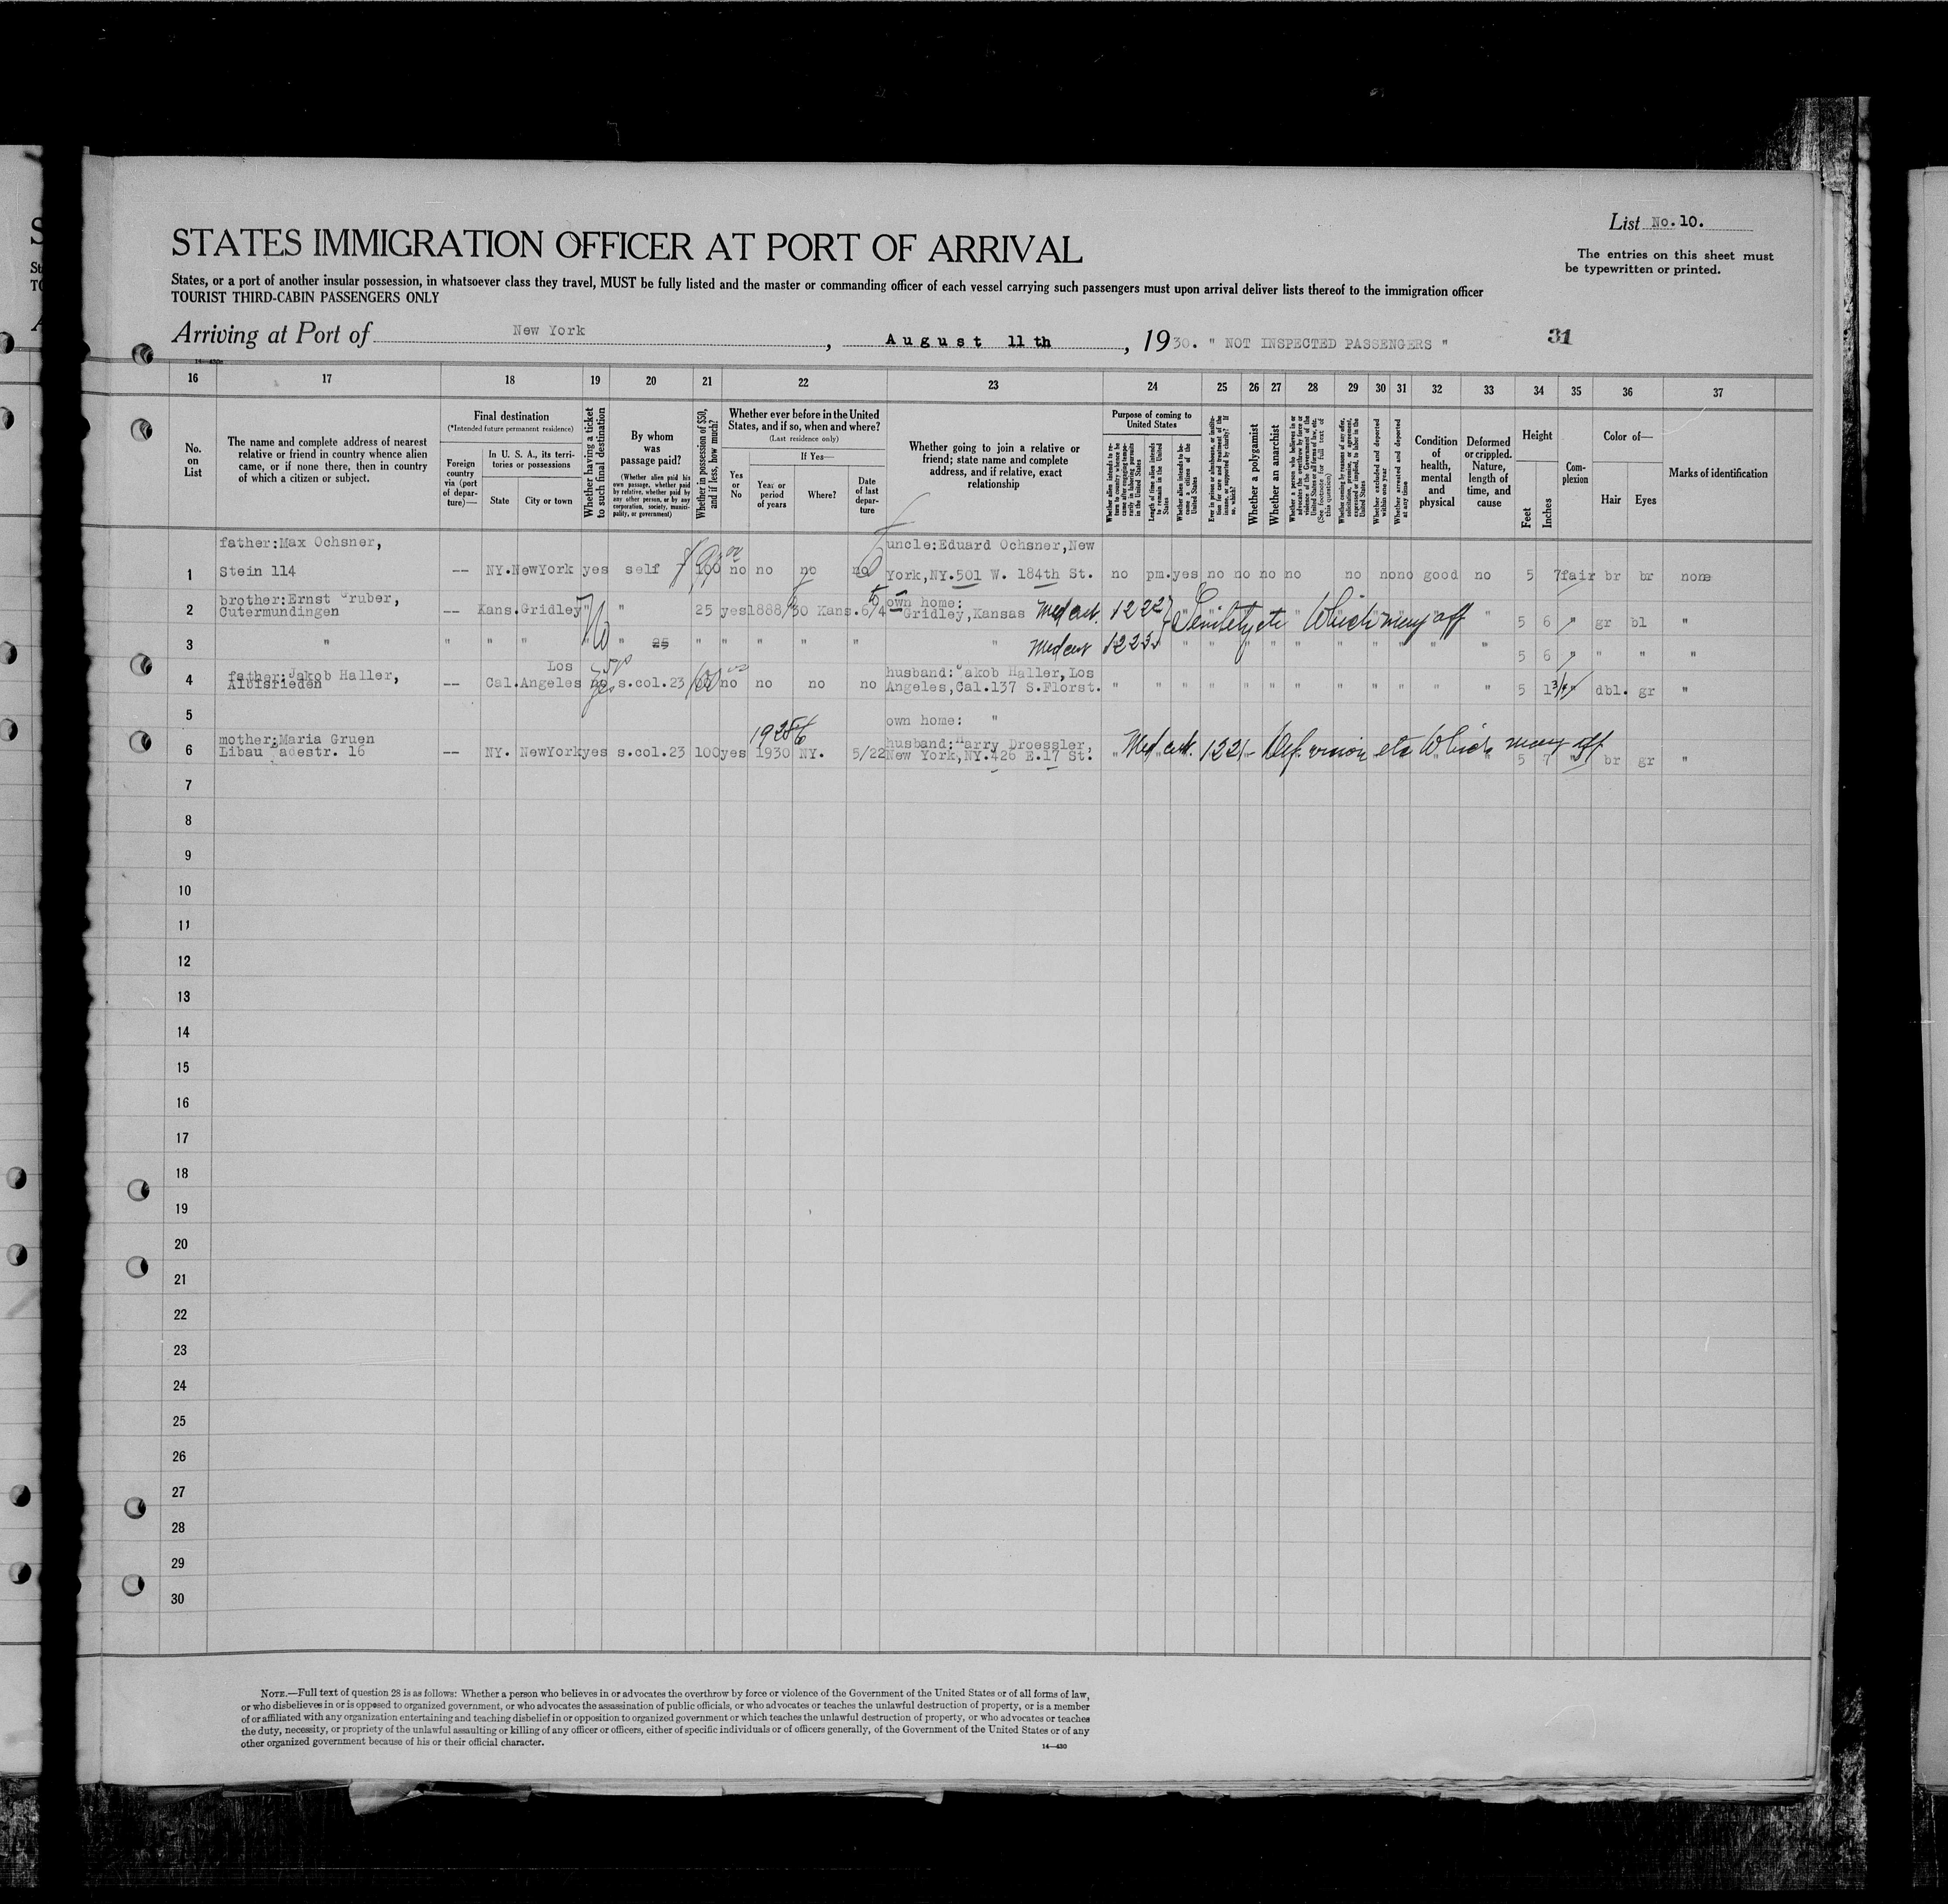 List No. 10.
STATES IMMIGRATION OFFICER AT PORT OF ARRIVAL
The entries on this sheet must
be typewritten or printed.
States, or a port of another insular possession, in whatsoever class they travel, MUST be fully listed and the master or commanding officer of each vessel carrying such passengers must upon arrival deliver lists thereof to the immigration officer
TOURIST THIRD-CABIN PASSENGERS ONLY
Arriving at Port of New York, August 11th, 1930. " NOT INSPECTED PASSENGERS " 31
16 17 18 19 20 21 22 23 24 25 26 27 28 29 30 31 32 33 34 35 36 37
No. on List
The name and complete address of nearest relative or friend in country whence alien came, or if none there, then in country of which a citizen or subject.
Final destination
(*Intended future permanent residence)
Foreign country via (port of departure)—
In U. S. A., its territories or possessions
State
City or town
Whether having a ticket to such final destination
By whom was passage paid?
(Whether alien paid his own passage, whether paid by relative, whether paid by any other person, or by any corporation, society, municipality, or government)
Whether in possession of $50, and if less, how much?
Whether ever before in the United States, and if so, when and where?
(Last residence only)
Yes or No
If Yes—
Year or period of years
Where?
Date of last departure
Whether going to join a relative or friend; state name and complete address, and if relative, exact relationship
Purpose of coming to United States
Length of time alien intends to remain in the United States
Whether alien intends to become a citizen of the United States
Whether a polygamist
Whether an anarchist
Whether excluded and deported within one year
Whether arrested and deported at any time
Condition of health, mental and physical
Deformed or crippled. Nature, length of time, and cause
Height
Feet
Inches
Complexion
Color of—
Hair
Eyes
Marks of identification
father:Max Ochsner, uncle:Eduard Ochsner,New
1 Stein 114 -- NY. NewYork yes self 100 no no no no York,NY.501 W. 184th St. no pm. yes no no no no no no no good no 5 7 fair br br none
brother:Ernst Gruber, own home:
2 Gutermundingen -- Kans. Gridley " " 25 yes 1888/30 Kans. 6/4 Gridley,Kansas Med cert. 12227 Senility etc Which may aff " 5 6 " gr bl "
3 " " " " " 25 " " " " " " Med cert 12233 5 6 " " " "
Los
father:Jakob Haller, husband:Jakob Haller,Los
4 Albisrieden -- Cal. Angeles no yes s.col.23 100 no no no no Angeles,Cal.137 S.Florst. " 5 1 3/4 " dbl. gr "
5 own home: "
mother:Maria Gruen 1928 husband:Harry Droessler,
6 Libau Badestr. 16 -- NY. NewYork yes s.col.23 100 yes 1930 NY. 5/22 New York,NY.426 E.17 St. " Med cert. 1221- Def. vision etc Which may aff 5 7 " br gr "
7
8
9
10
11
12
13
14
15
16
17
18
19
20
21
22
23
24
25
26
27
28
29
30
NOTE.—Full text of question 28 is as follows: Whether a person who believes in or advocates the overthrow by force or violence of the Government of the United States or of all forms of law,
or who disbelieves in or is opposed to organized government, or who advocates the assassination of public officials, or who advocates or teaches the unlawful destruction of property, or is a member
of or affiliated with any organization entertaining and teaching disbelief in or opposition to organized government or which teaches the unlawful destruction of property, or who advocates or teaches
the duty, necessity, or propriety of the unlawful assaulting or killing of any officer or officers, either of specific individuals or of officers generally, of the Government of the United States or of any
other organized government because of his or their official character.
14—430